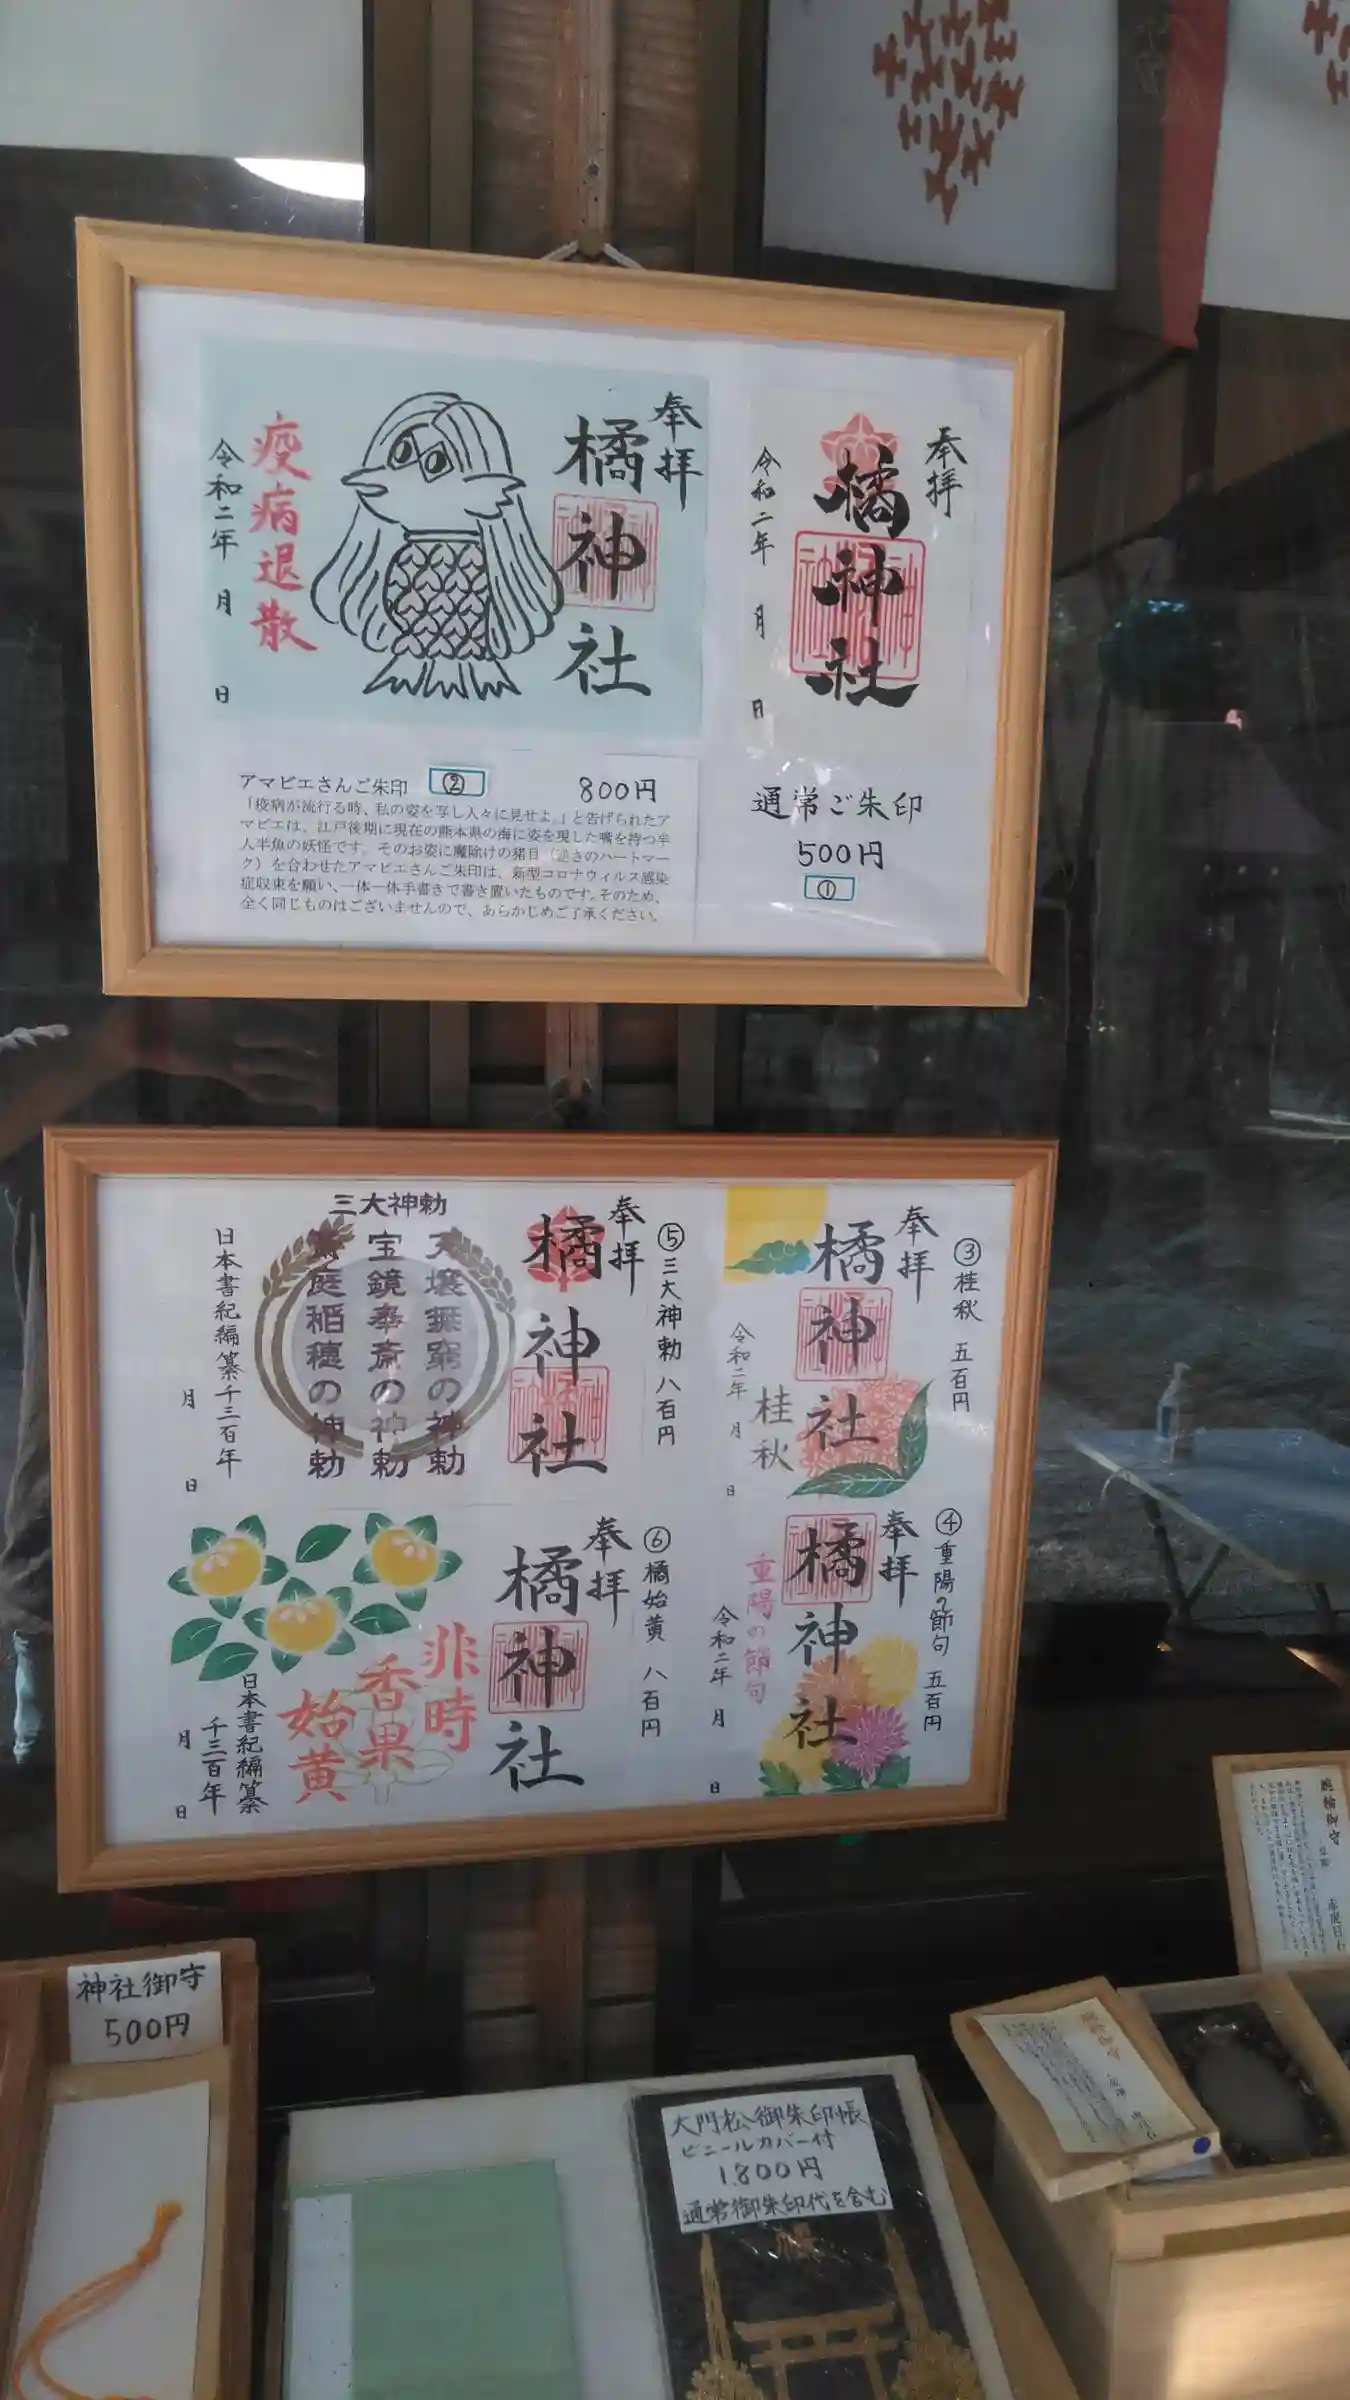 奉拝
橘神社
疫病退散
令和二年 月 日
アマビエさんご朱印 ② 800円
「疫病が流行る時、私の姿を写し人々に見せよ。」と告げられたア
マビエは、江戸後期に現在の熊本県の海に姿を現した嘴を持つ半
人半魚の妖怪です。そのお姿に魔除けの猪目(逆さのハートマー
ク)を合わせたアマビエさんご朱印は、新型コロナウィルス感染
症収束を願い、一体一体手書きで書き置いたものです。そのため、
全く同じものはございませんので、あらかじめご了承ください。
奉拝
橘神社
令和二年 月 日
通常ご朱印
500円
①
③桂秋 五百円
奉拝
橘神社
桂秋
令和二年 月 日
④重陽の節句 五百円
奉拝
橘神社
重陽の節句
令和二年 月 日
⑤三大神勅 八百円
奉拝
橘神社
三大神勅
天壌無窮の神勅
宝鏡奉斎の神勅
斎庭稲穂の神勅
日本書紀編纂千三百年
月 日
⑥橘始黄 八百円
奉拝
橘神社
非時
香果
始黄
日本書紀編纂
千三百年
月 日
神社御守
500円
大門松御朱印帳
ビニールカバー付
1.800円
通常御朱印代を含む
腕輪御守